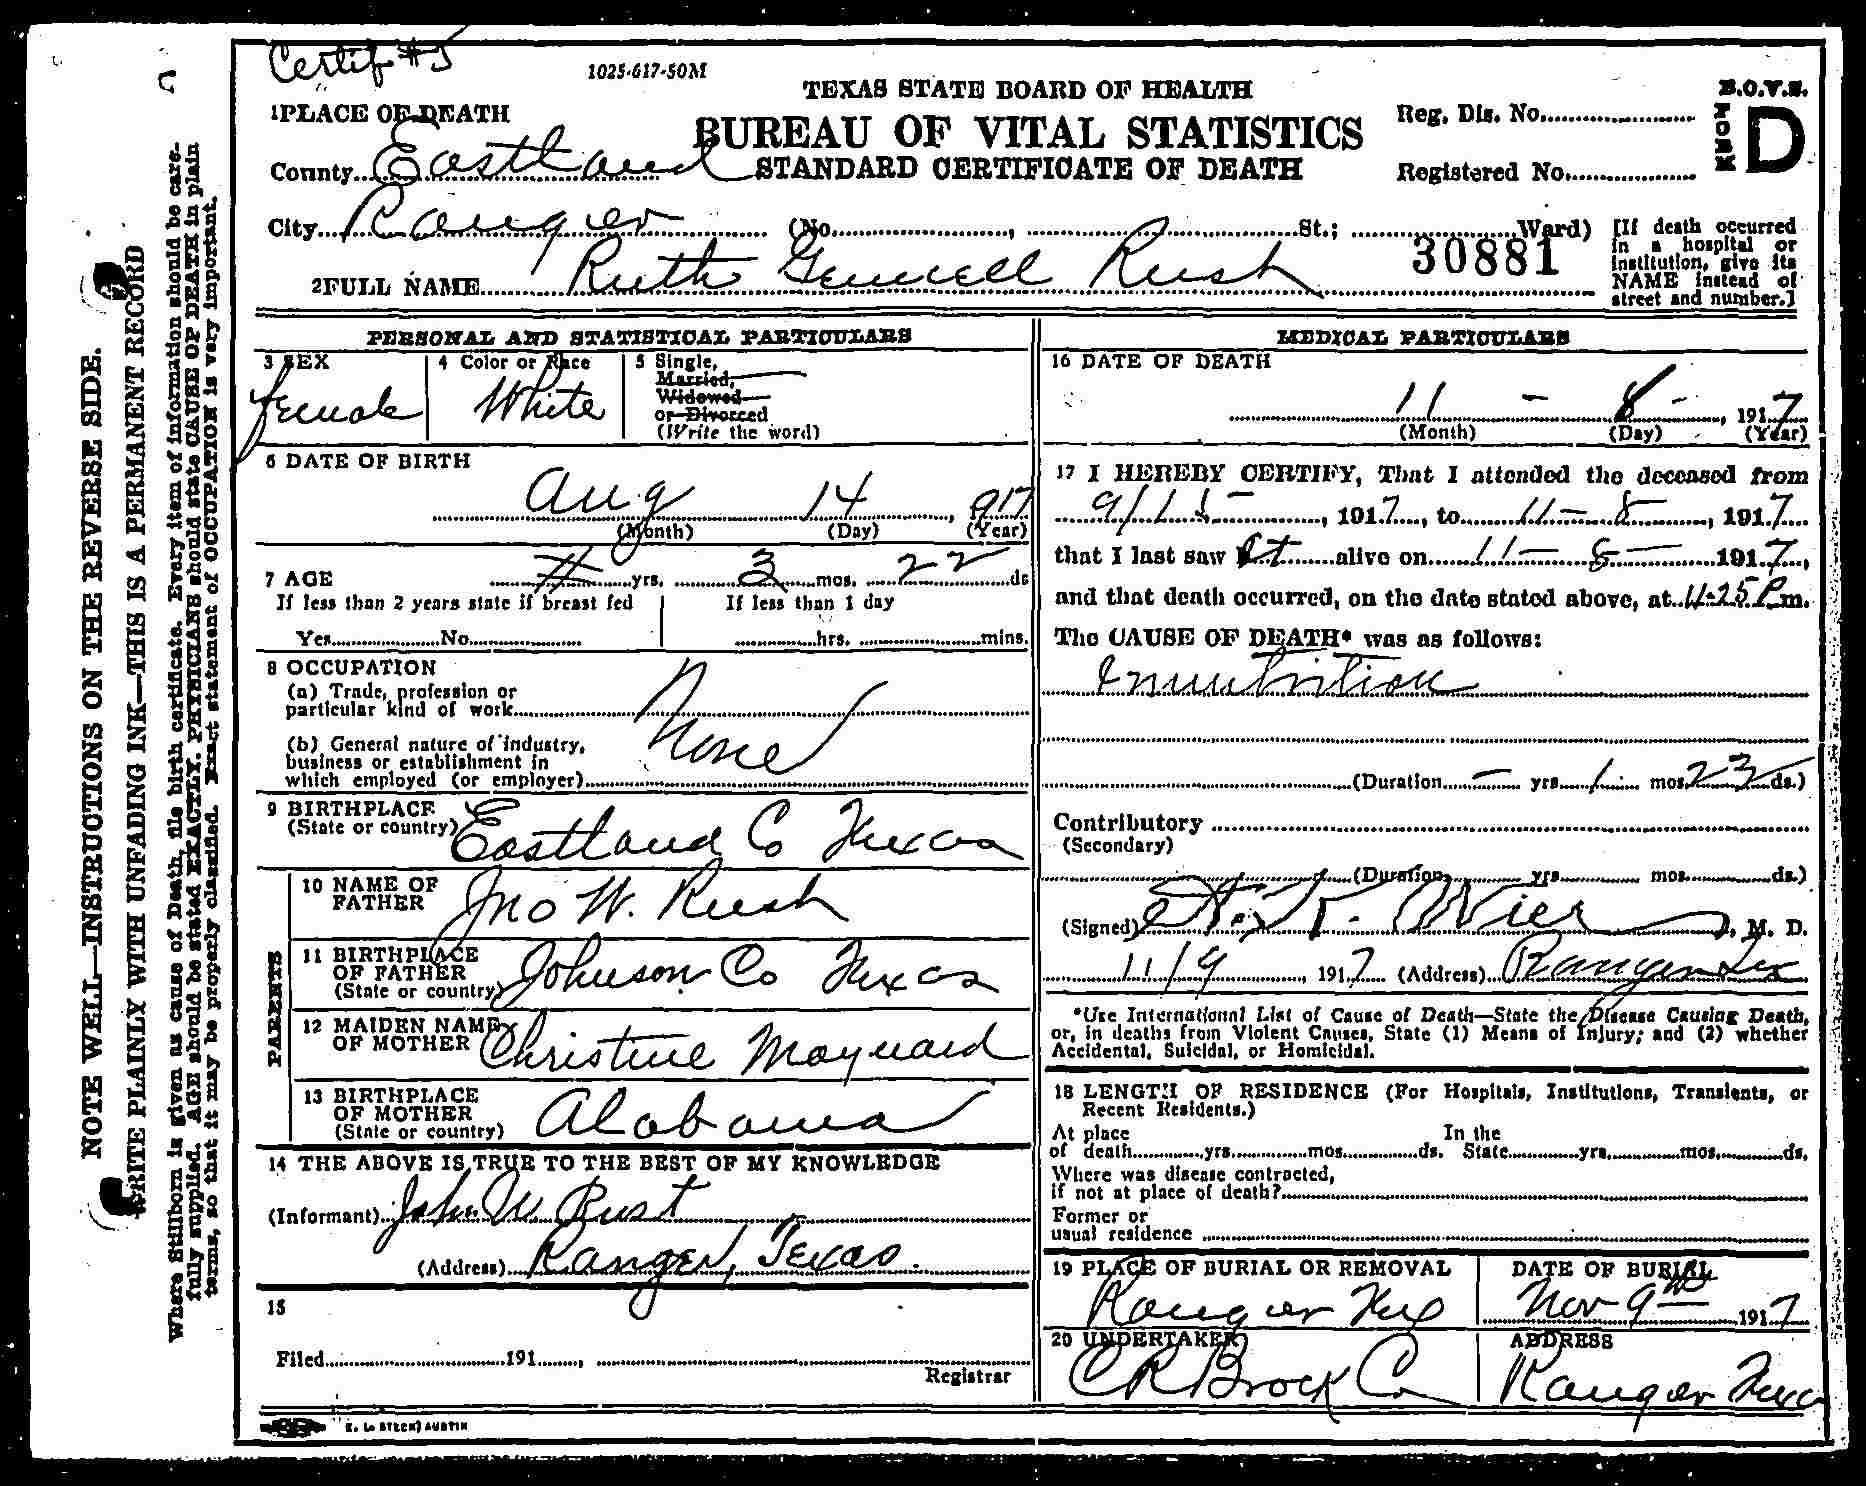 Certif #5
1025-617-50M
TEXAS STATE BOARD OF HEALTH
BUREAU OF VITAL STATISTICS
STANDARD CERTIFICATE OF DEATH
B.O.V.S.
FORM D
Reg. Dis. No.
Registered No.
1 PLACE OF DEATH
County Eastland
City Ranger (No. , St.; Ward)
30881
[If death occurred
in a hospital or
institution, give its
NAME instead of
street and number.]
2 FULL NAME Ruth Rush
PERSONAL AND STATISTICAL PARTICULARS
3 SEX
female
4 Color or Race
White
5 Single,
Married,
Widowed
or Divorced
(Write the word)
6 DATE OF BIRTH
Aug 14, 917
(Month) (Day) (Year)
7 AGE yrs. 3 mos. 22 ds
If less than 2 years state if breast fed
Yes No
If less than 1 day
hrs. mins.
8 OCCUPATION
(a) Trade, profession or
particular kind of work
None
(b) General nature of industry,
business or establishment in
which employed (or employer)
9 BIRTHPLACE
(State or country) Eastland Co Texas
PARENTS
10 NAME OF
FATHER Jno W. Rush
11 BIRTHPLACE
OF FATHER
(State or country) Johnson Co Texas
12 MAIDEN NAME
OF MOTHER Christine Maynard
13 BIRTHPLACE
OF MOTHER
(State or country) Alabama
14 THE ABOVE IS TRUE TO THE BEST OF MY KNOWLEDGE
(Informant) John W. Rust
(Address) Ranger, Texas.
15
Filed 191 ,
Registrar
E. L. STECK, AUSTIN
MEDICAL PARTICULARS
16 DATE OF DEATH
11 - 8 - , 1917
(Month) (Day) (Year)
17 I HEREBY CERTIFY, That I attended the deceased from
9/15 , 1917, to 11-8 , 1917
that I last saw alive on 11-8- 1917,
and that death occurred, on the date stated above, at 11-25 P m.
The CAUSE OF DEATH* was as follows:
Innutrition
(Duration - yrs. 1 mos. 23 ds.)
Contributory
(Secondary)
(Duration yrs. mos. ds.)
(Signed) , M. D.
11/9 , 1917 (Address) Ranger Tex
*Use International List of Cause of Death—State the Disease Causing Death,
or, in deaths from Violent Causes, State (1) Means of Injury; and (2) whether
Accidental, Suicidal, or Homicidal.
18 LENGTH OF RESIDENCE (For Hospitals, Institutions, Transients, or
Recent Residents.)
At place
of death yrs. mos. ds.
In the
State yrs. mos. ds.
Where was disease contracted,
if not at place of death?
Former or
usual residence
19 PLACE OF BURIAL OR REMOVAL
Ranger Tex
DATE OF BURIAL
Nov 9th 1917
20 UNDERTAKER
C R Brock Co
ADDRESS
Ranger Texas
NOTE WELL—INSTRUCTIONS ON THE REVERSE SIDE.
WRITE PLAINLY WITH UNFADING INK—THIS IS A PERMANENT RECORD
Where Stillborn is given as cause of Death, file birth certificate. Every item of information should be care-
fully supplied. AGE should be stated EXACTLY. PHYSICIANS should state CAUSE OF DEATH in plain
terms, so that it may be properly classified. Exact statement of OCCUPATION is very important.